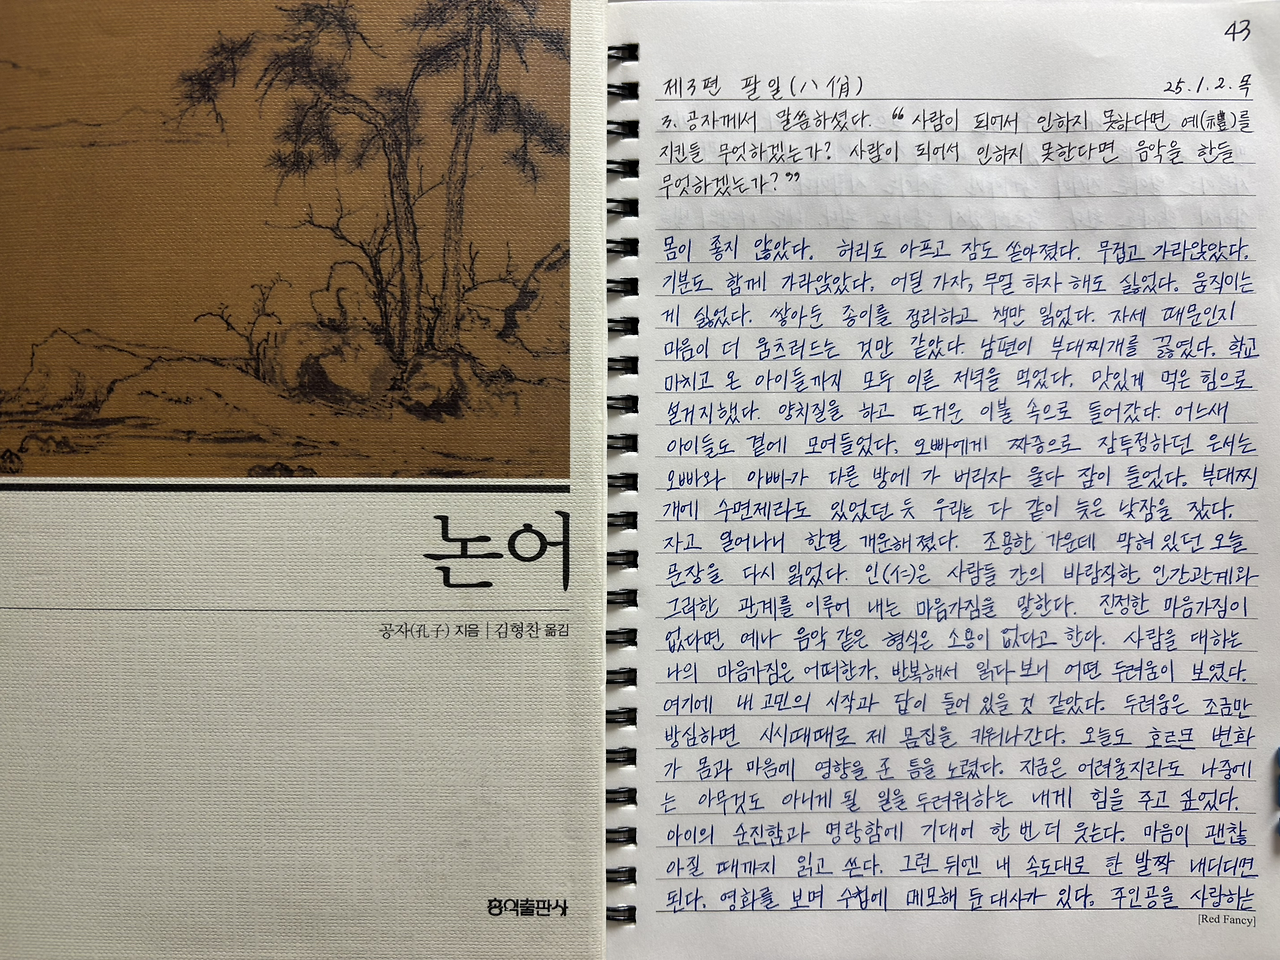 논어
공자(孔子) 지음 | 김형찬 옮김
홍익출판사
43
제3편 팔일(八佾) 25.1.2.목
3. 공자께서 말씀하셨다. “사람이 되어서 인하지 못하다면 예(禮)를
지킨들 무엇하겠는가? 사람이 되어서 인하지 못한다면 음악을 한들
무엇하겠는가?”
몸이 좋지 않았다. 허리도 아프고 잠도 쏟아졌다. 무겁고 가라앉았다.
기분도 함께 가라앉았다. 어딜 가자, 무얼 하자 해도 싫었다. 움직이는
게 싫었다. 쌓아둔 종이를 정리하고 책만 읽었다. 자세 때문인지
마음이 더 움츠러드는 것만 같았다. 남편이 부대찌개를 끓였다. 학교
마치고 온 아이들까지 모두 이른 저녁을 먹었다. 맛있게 먹은 힘으로
설거지했다. 양치질을 하고 뜨거운 이불 속으로 들어갔다. 어느새
아이들도 곁에 모여들었다. 오빠에게 짜증으로 잠투정하던 은서는
오빠와 아빠가 다른 방에 가 버리자 울다 잠이 들었다. 부대찌
개에 수면제라도 있었던 듯 우리는 다 같이 늦은 낮잠을 잤다.
자고 일어나니 한결 개운해졌다. 조용한 가운데 막혀 있던 오늘
문장을 다시 읽었다. 인(仁)은 사람들 간의 바람직한 인간관계와
그러한 관계를 이루어 내는 마음가짐을 말한다. 진정한 마음가짐이
없다면 예나 음악 같은 형식은 소용이 없다고 한다. 사람을 대하는
나의 마음가짐은 어떠한가. 반복해서 읽다 보니 어떤 두려움이 보였다.
여기에 내 고민의 시작과 답이 들어 있을 것 같았다. 두려움은 조금만
방심하면 시시때때로 제 몸집을 키워나간다. 오늘도 호르몬 변화
가 몸과 마음에 영향을 준 틈을 노렸다. 지금은 어려울지라도 나중에
는 아무것도 아니게 될 일을 두려워하는 내게 힘을 주고 싶었다.
아이의 순진함과 명랑함에 기대어 한 번 더 웃는다. 마음이 괜찮
아질 때까지 읽고 쓴다. 그런 뒤엔 내 속도대로 한 발짝 내디디면
된다. 영화를 보며 수첩에 메모해 둔 대사가 있다. 주인공을 사랑하는
[Red Fancy]